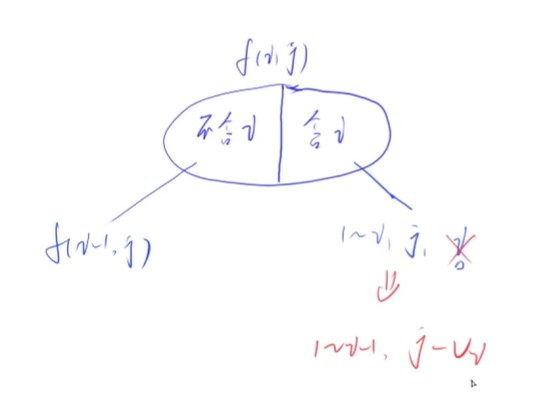 f(i, j)
不含i 含i
f(i-1, j)
1~i, j, 含i
1~i-1, j-vi